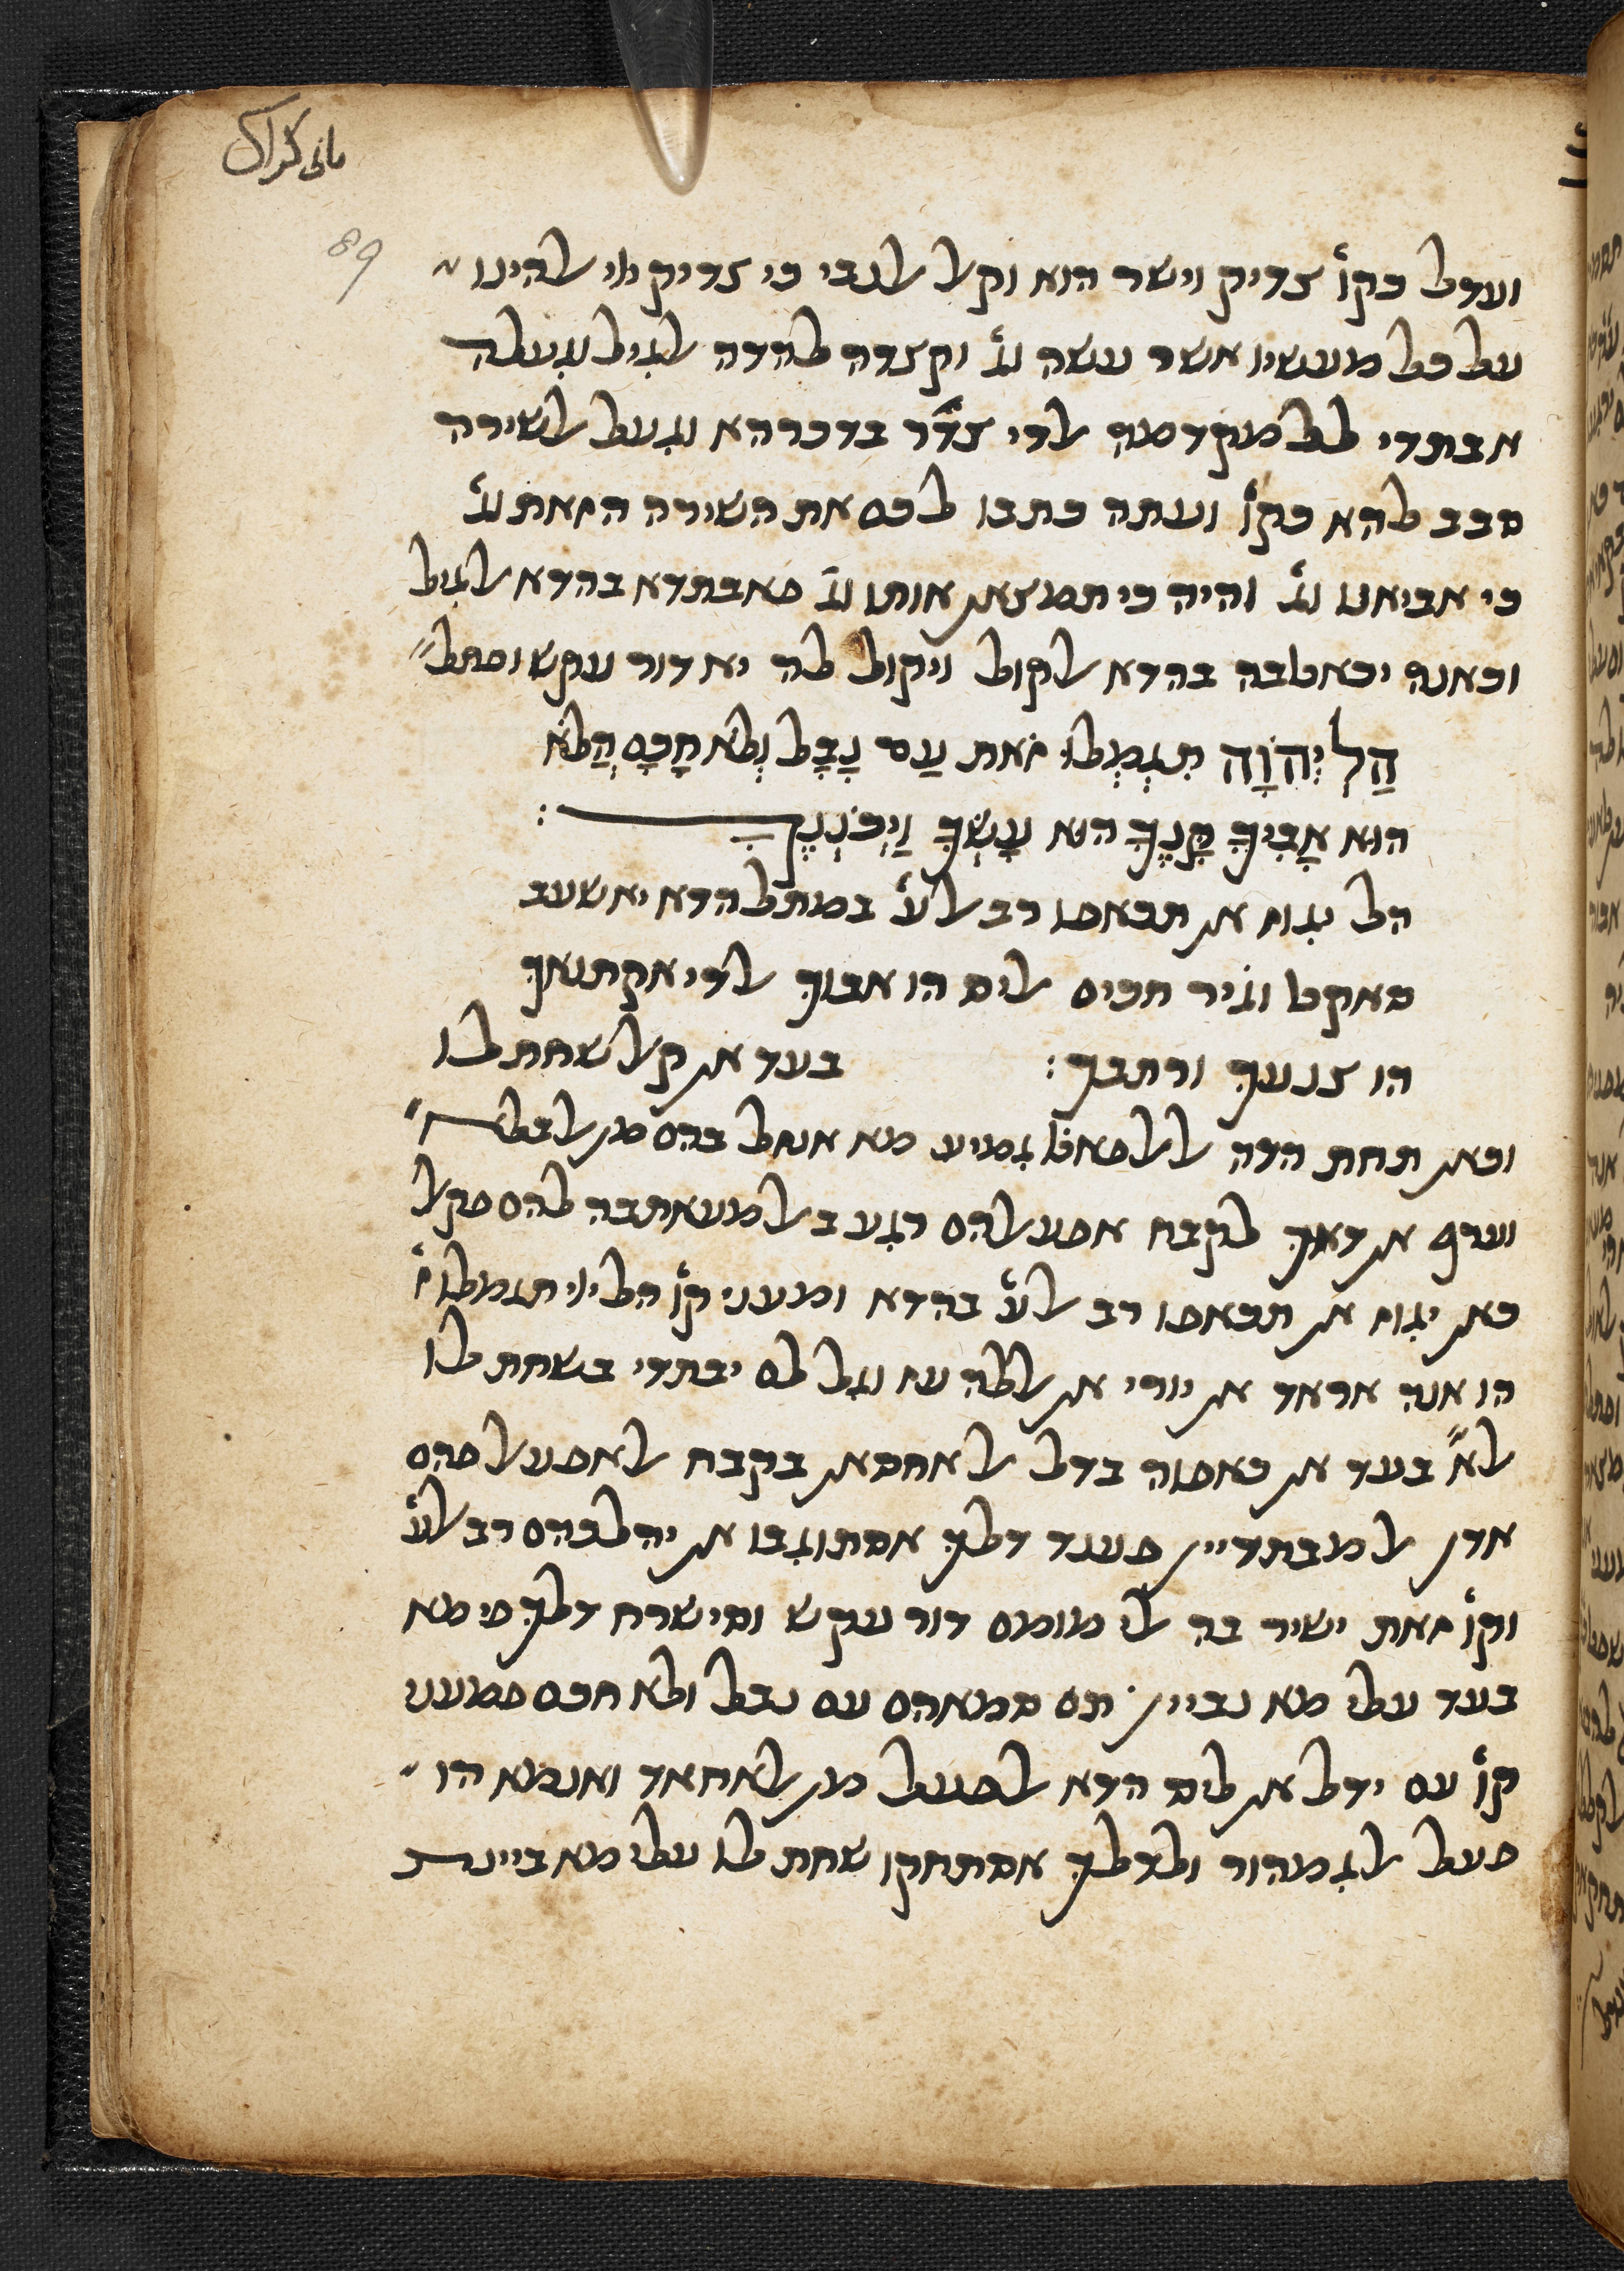 ועדל כקו׳ צדיק וישר הוא וקאל אלנבי כי צדיק ייי אלהינו
על כל מעשיו אשר עשה וג׳ וקצדה להדה אלגיל וגעלה
אבתדי ללמקדמה אלדי צדׄר בדכרהא וגעל אלשירה
סבב להא כקו׳ ועתה כתבו לכם את השירה הזאת וג׳
כי אביאנו וג׳ והיה כי תמצאן אותו וג׳ פאבתדא בהדא אלגיל
וכאנה יכאטבה בהדא אלקול ויקול לה יא דור עקש ופתל״
הַלְיְהוָֹה תִגְמְלוּ זֹאת עַם נָבָל וְלֹא חָכָם הֲלֹא
הוּא אָבִיךָ קָּנֶךָ הוּא עָשְׂךָ וַיְכֹנְנֶךָ :
הל יגוז אן תכאפו רב אלע׳ במתל הדא יאשעב
סאקט וגיר חכים אליס הו אבוך אלדי אקתנאך
הו צנעך ורתבך : בעד אן קאל שחת לו
וכאן תחת הדה אללפאטׄ גמיע מא אנזל בהם מן אלבלא״
וערף אן דאך לקבח אפעאלהם רגע באלמעאתבה להם פקאל
כאן יגוז אן תכאפו רב אלע׳ בהדא ומעני קו׳ הל ייי תגמלו ז׳
הו אנה אראד אן יורי אן אללה עז וגל לם יבתדי בשחת לו
אלא״ בעד אן כאפוה בדל אלאחסאן בקבח אלאפעאל פהם
אדן אלמבתדיין פענד דלך אסתוגבו אן יהלכהם רב אלע׳
וקו׳ זאת ישיר בה אלי מומם דור עקש וסישרח דלך פימא
בעד עלי מא נביין תם סמאהם עם נבל ולא חכם פמעני
קו׳ עם ידל אן ליס הדא אלפעל מן אלאחאד ואנמא הו
פעל אלגמהור ולדלך אסתחקו שחת לו עלי מא ביינת